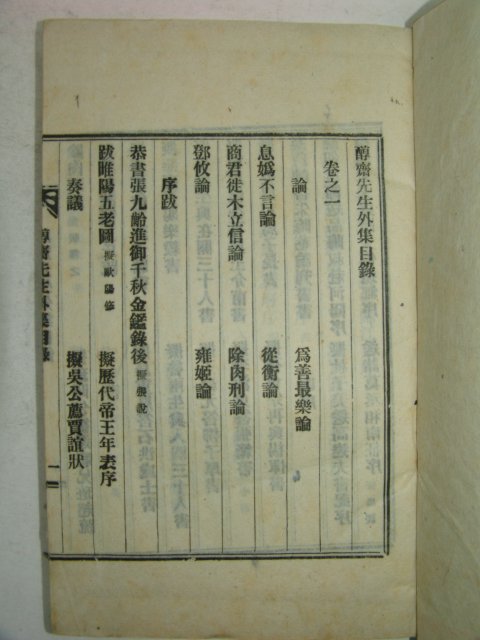 醇齋先生外集目錄
卷之一
論
爲善最樂論
息嬀不言論
從衡論
商君徙木立信論
除肉刑論
鄧攸論
雍姬論
序跋
恭書張九齡進御千秋金鑑錄後 擬張說
跋睢陽五老圖 擬歐陽修
擬歷代帝王年表序
奏議
擬吳公薦賈誼狀
醇齋先生外集目錄
一